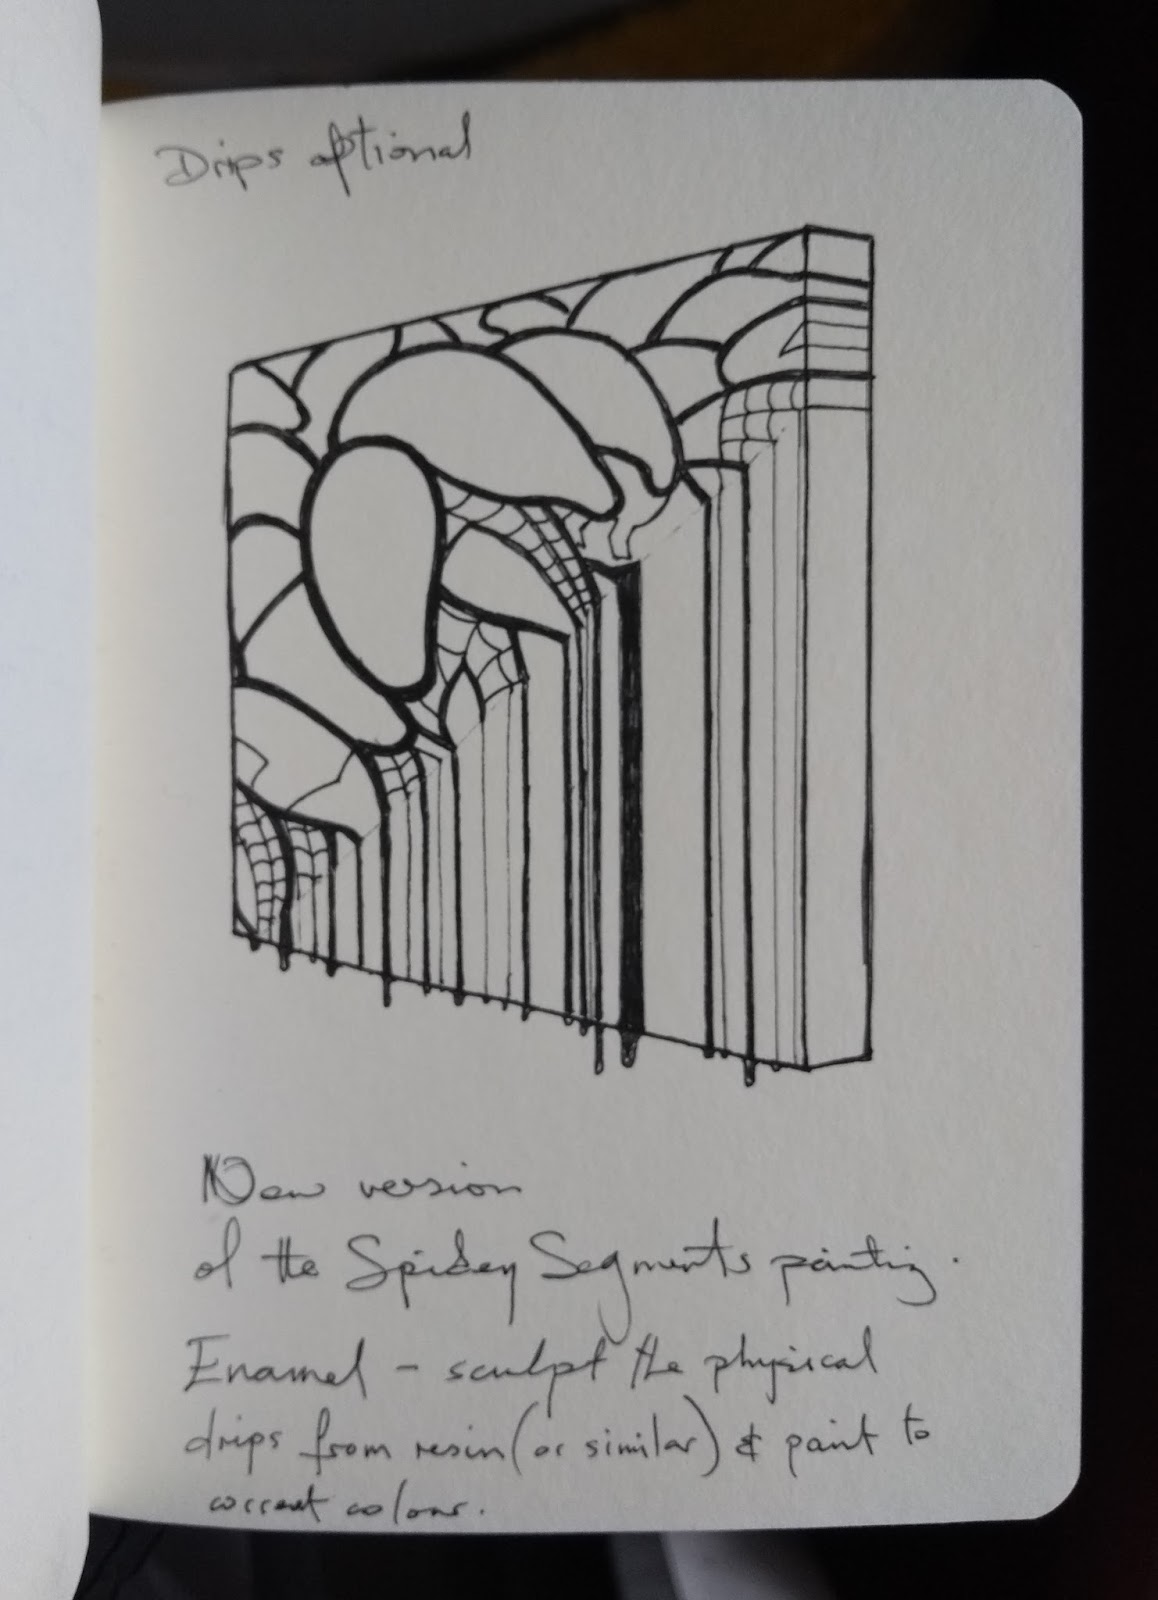 Drips optional
New version
of the Spidey Segments painting.
Enamel - sculpt the physical
drips from resin (or similar) & paint to
correct colour.